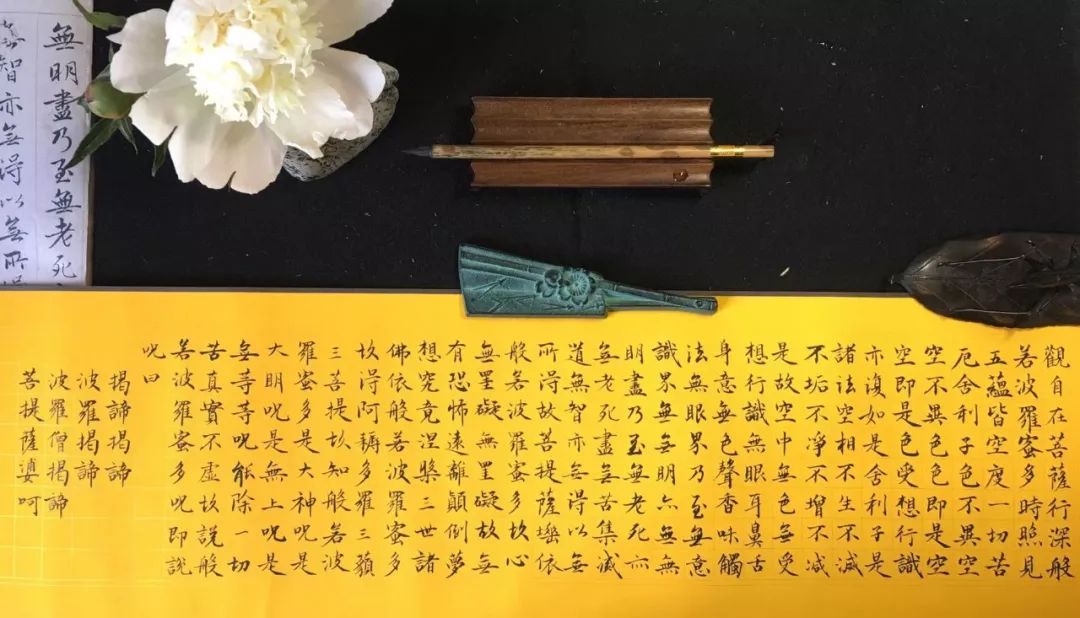 觀自在菩薩行深般
若波羅蜜多時照見
五蘊皆空度一切苦
厄舍利子色不異空
空不異色色即是空
空即是色受想行識
亦復如是舍利子是
諸法空相不生不滅
不垢不淨不增不減
是故空中無色無受
想行識無眼耳鼻舌
身意無色聲香味觸
法無眼界乃至無意
識界無無明亦無無
明盡乃至無老死亦
無老死盡無苦集滅
道無智亦無得以無
所得故菩提薩埵依
般若波羅蜜多故心
無罣礙無罣礙故無
有恐怖遠離顛倒夢
想究竟涅槃三世諸
佛依般若波羅蜜多
故得阿耨多羅三藐
三菩提故知般若波
羅蜜多是大神呪是
大明呪是無上呪是
無等等呪能除一切
苦真實不虛故說般
若波羅蜜多呪即說
呪曰
揭諦揭諦
波羅揭諦
波羅僧揭諦
菩提薩婆呵
無明盡乃至無老死
智亦無得以無所